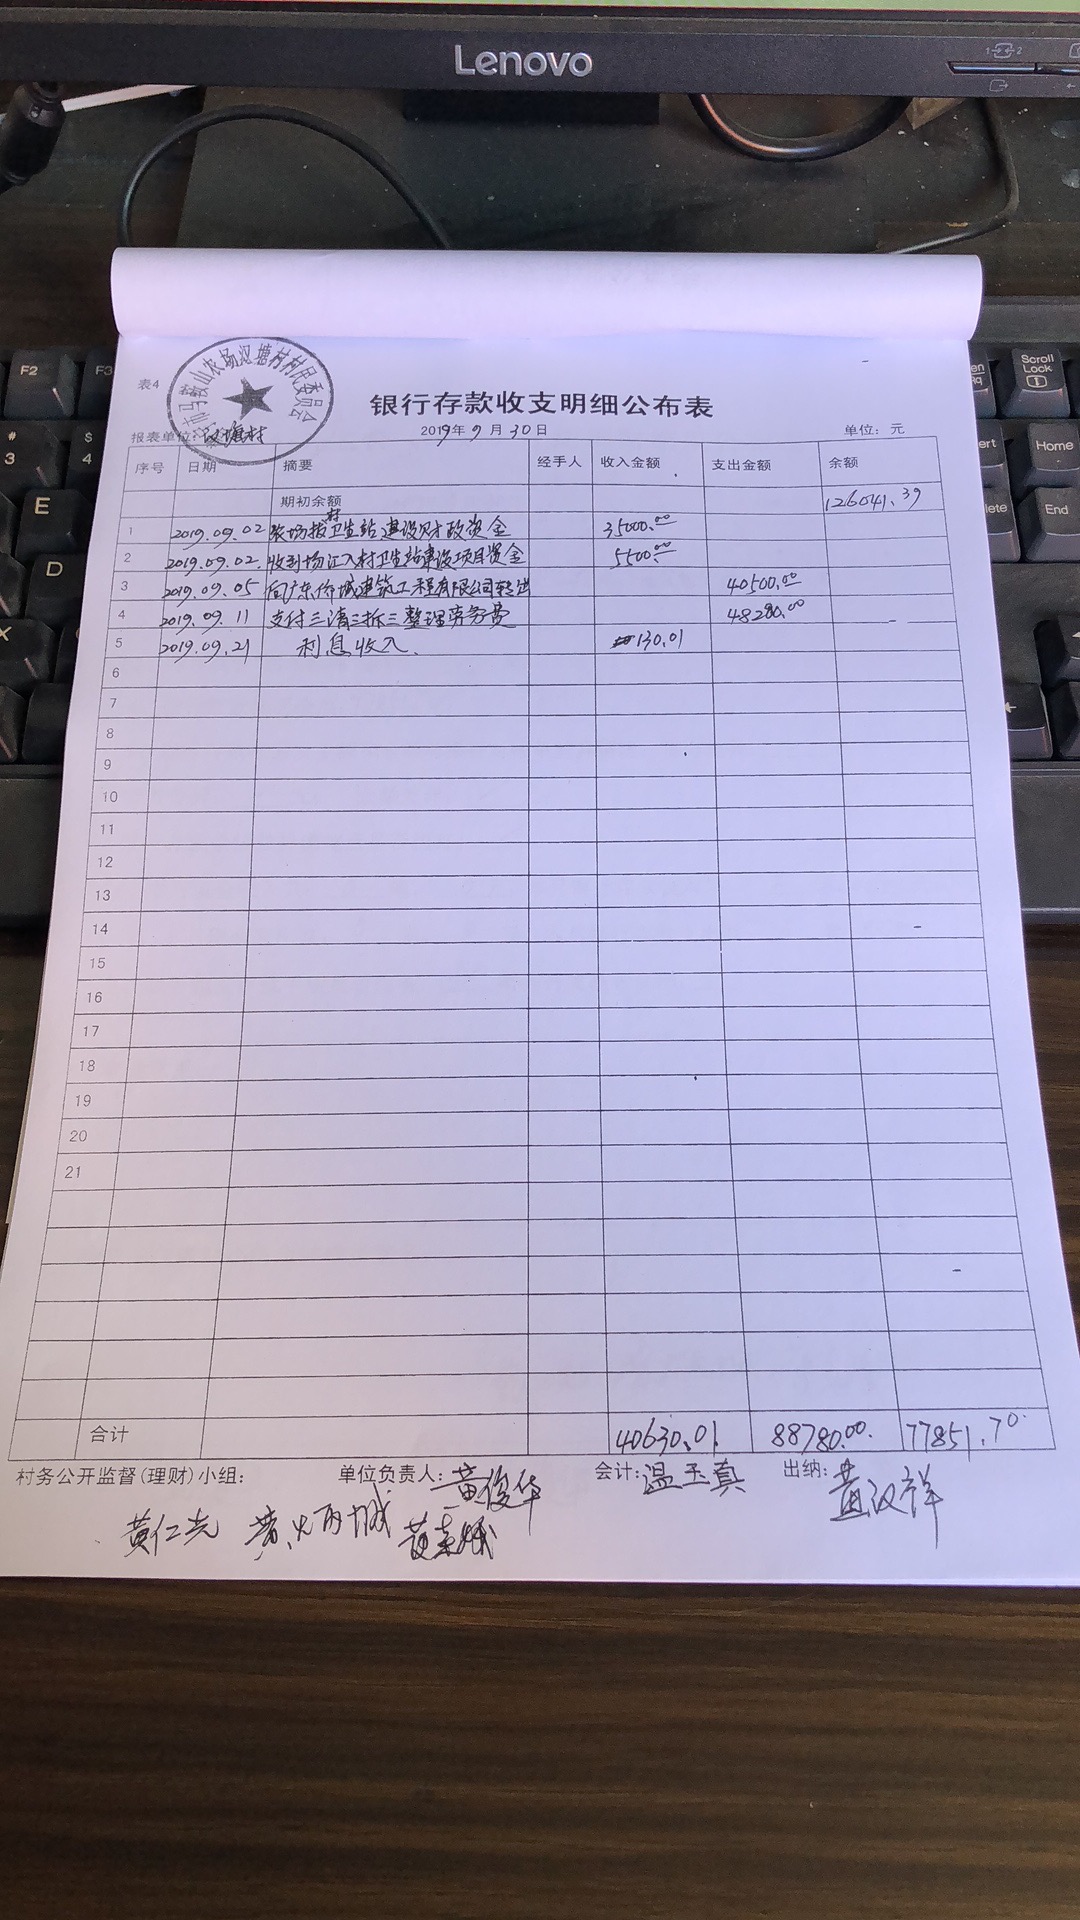 Lenovo
F2
F3
Scroll Lock
#
3
$
4
E
D
X
Home
End
表4
马鞍山农场汉塘村村民委员会
银行存款收支明细公布表
报表单位:汉塘村
2019年9月30日
单位:元
序号 日期 摘要 经手人 收入金额 支出金额 余额
期初余额 126041.39
1 2019.09.02 农场拨村卫生站建设财政资金 35000.00
2 2019.09.02. 收到场汇入村卫生站建设项目资金 5500.00
3 2019.09.05 向广东侨城建筑工程有限公司转出 40500.00
4 2019.09.11 支付三清三拆三整理劳务费 48280.00
5 2019.09.21 利息收入. 130.01
6
7
8
9
10
11
12
13
14
15
16
17
18
19
20
21
合计 40630.01 88780.00. 77851.70
村务公开监督(理财)小组: 单位负责人:黄俊华 会计:温玉真 出纳:黄汉祥
黄仁光 黄火丙城